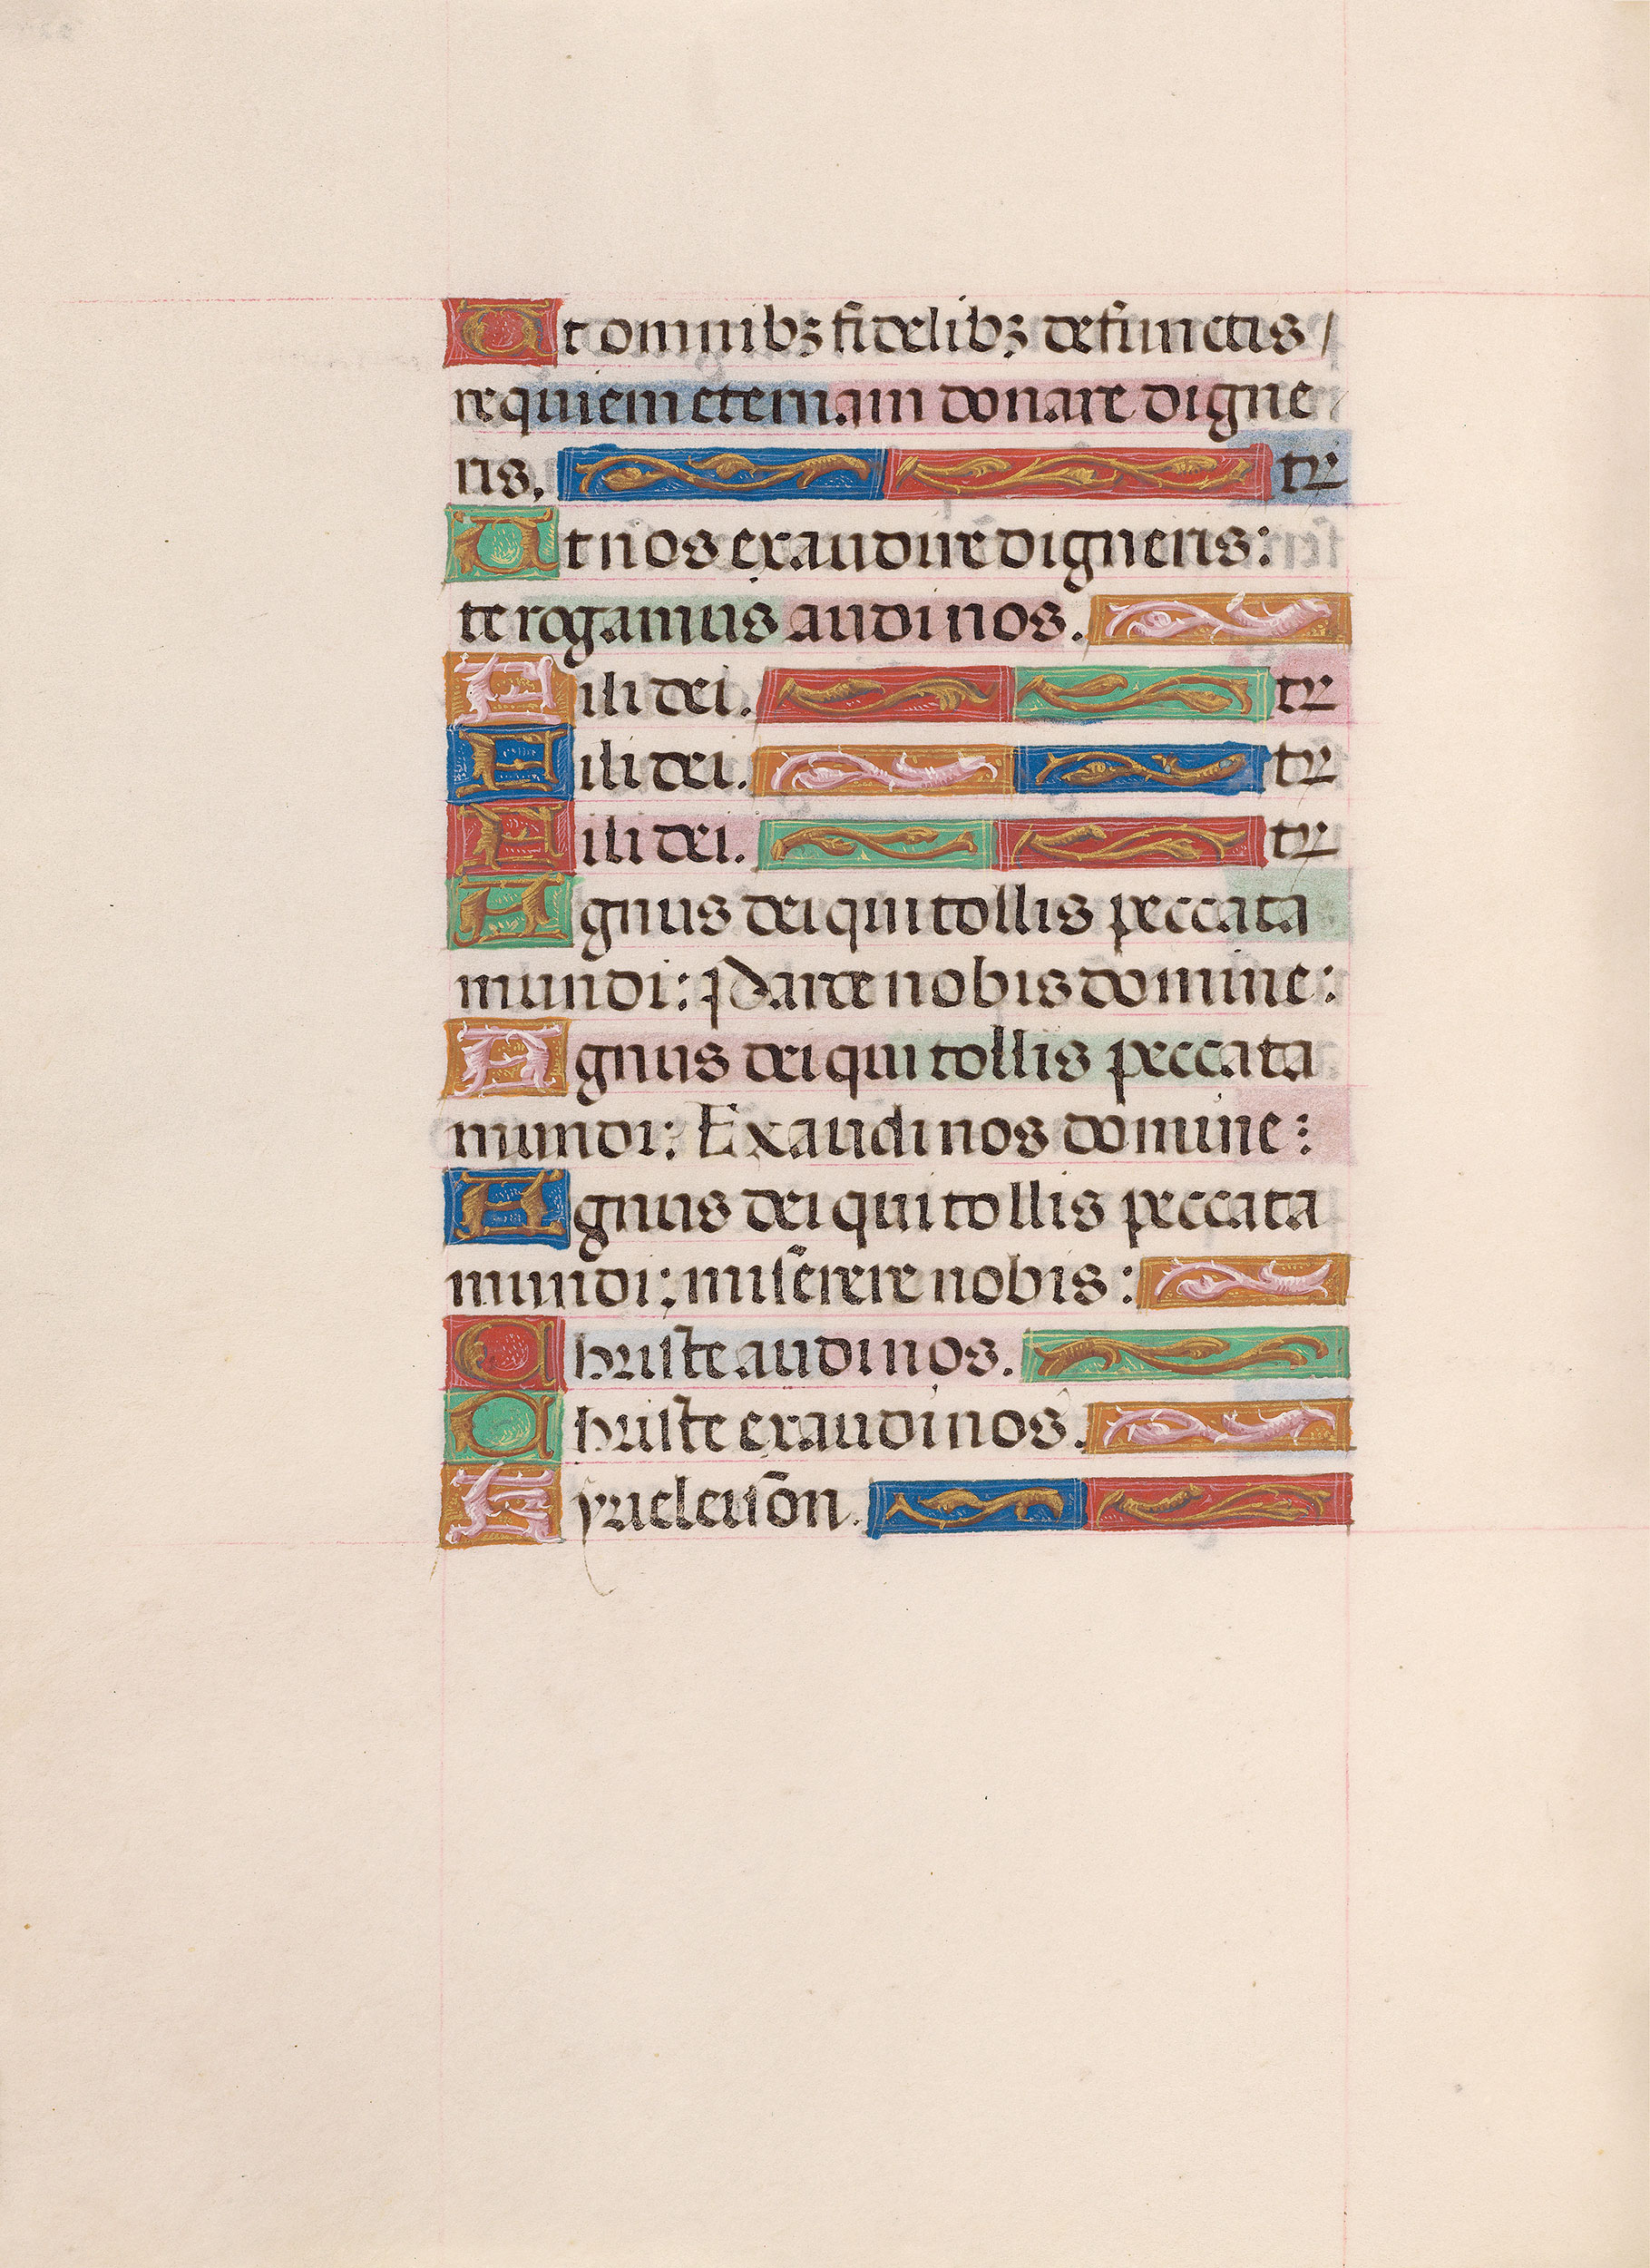 Ut omnibꝫ fidelibꝫ defunctis /
requiem eternam donare digne
ris. tr
Ut nos exaudire digneris:
te rogamus audi nos.
Fili dei. tr
Fili dei. tr
Fili dei. tr
Agnus dei qui tollis peccata
mundi: Parce nobis domine:
Agnus dei qui tollis peccata
mundi: Exaudi nos domine:
Agnus dei qui tollis peccata
mundi: miserere nobis:
Christe audi nos.
Christe exaudi nos.
Kyrieleison.